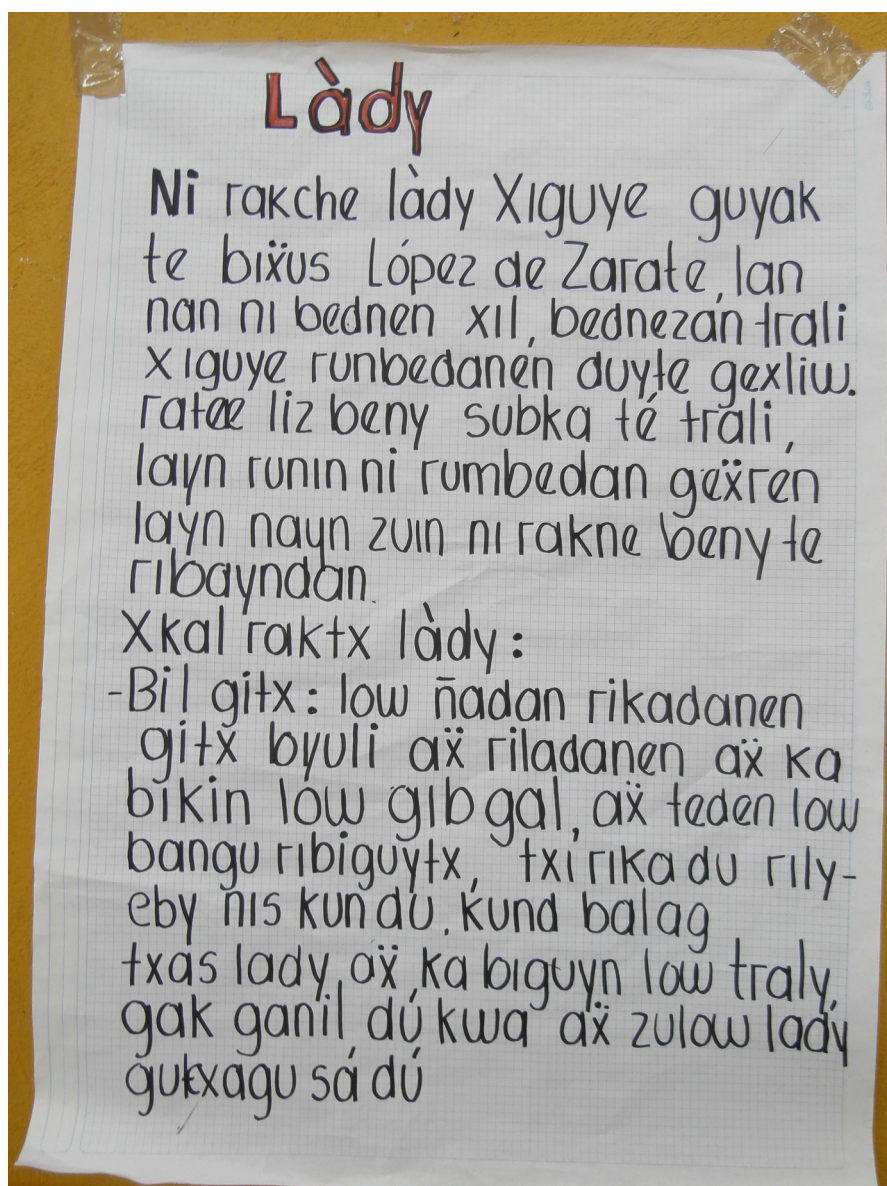 Làdy
Ni rakche làdy Xıguye guyak
te biẍus López de Zarate, lan
nan nı bednen xıl, bednezan trali
xıguye runbedanen duyte gexliw.
ratee liz beny subka té trali,
layn runın ni rumbedan gëẍren
layn nayn zuın nı rakne beny te
rıbayndan.
Xkal raktx làdy:
-Bil gitx: low n̄adan rikadanen
gitx byuli aẍ riladanen aẍ ka
bikin low gıb gal, aẍ teden low
bangu rıbiguytx, txi rıka du rıly-
eby nıs kun dú. kund balag
txas lady, aẍ ka bıguyn low traly,
gak ganil dú kwa aẍ zulow lady
gukxagu sá dú